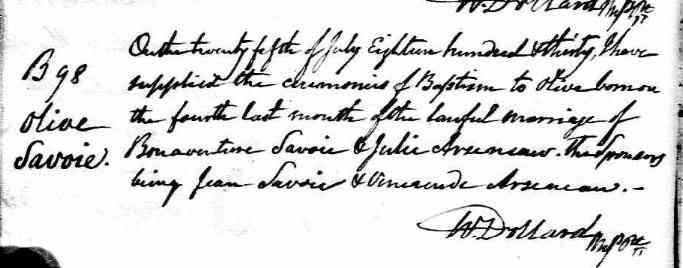 W. Dollard
On the twenty fifth of July Eighteen hundred & thirty, I have
B 98
supplied the ceremonies of Baptism to Olive born on
Olive
the fourth last month of the lawful marriage of
Savoie.
Bonaventure Savoie & Julie Arseneau. The Sponsors
being Jean Savoie & Arseneau.-
W. Dollard